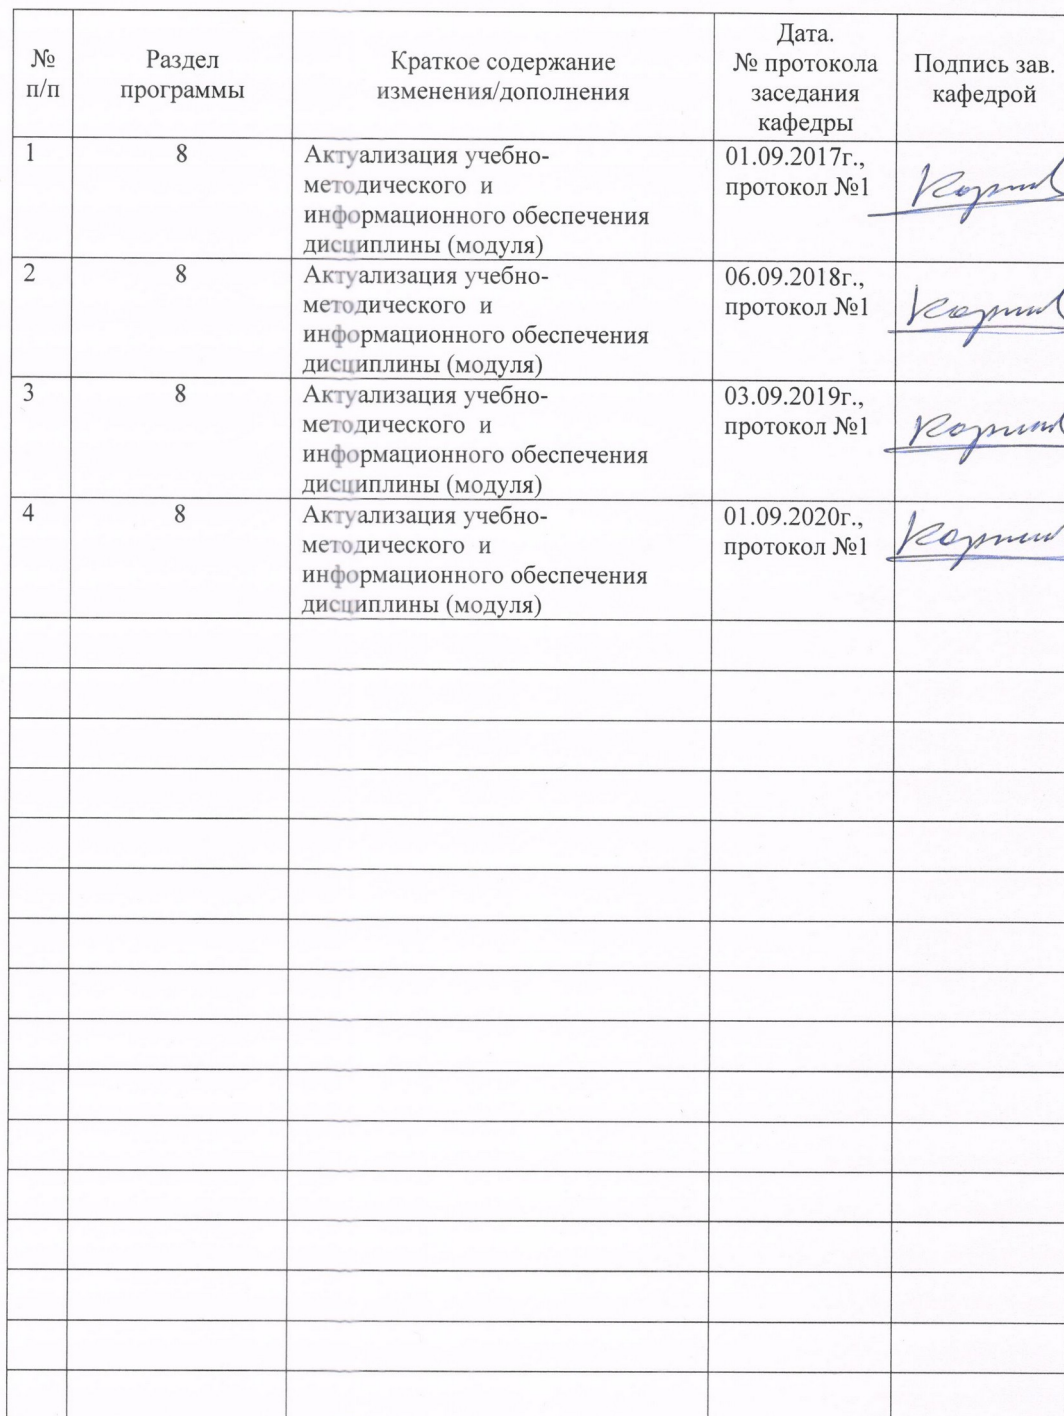 № п/п
Раздел программы
Краткое содержание
изменения/дополнения
Дата.
№ протокола
заседания
кафедры
Подпись зав.
кафедрой
1
8
Актуализация учебно-
методического и
информационного обеспечения
дисциплины (модуля)
01.09.2017г.,
протокол №1
2
8
Актуализация учебно-
методического и
информационного обеспечения
дисциплины (модуля)
06.09.2018г.,
протокол №1
3
8
Актуализация учебно-
методического и
информационного обеспечения
дисциплины (модуля)
03.09.2019г.,
протокол №1
4
8
Актуализация учебно-
методического и
информационного обеспечения
дисциплины (модуля)
01.09.2020г.,
протокол №1